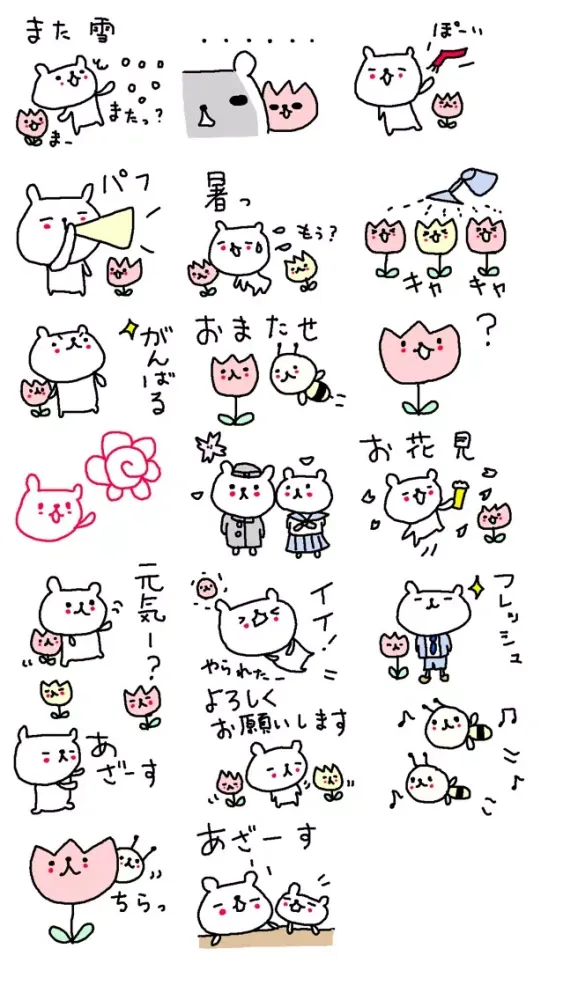 また雪
またっ?
まー
・・・・・・
ぽーい
パフ
暑っ
もう?
キャ キャ
がんばる
おまたせ
?
お花見
元気ー?
イイ!
やられた_
フレッシュ
あざーす
よろしく
お願いします
ちらっ
あざーす